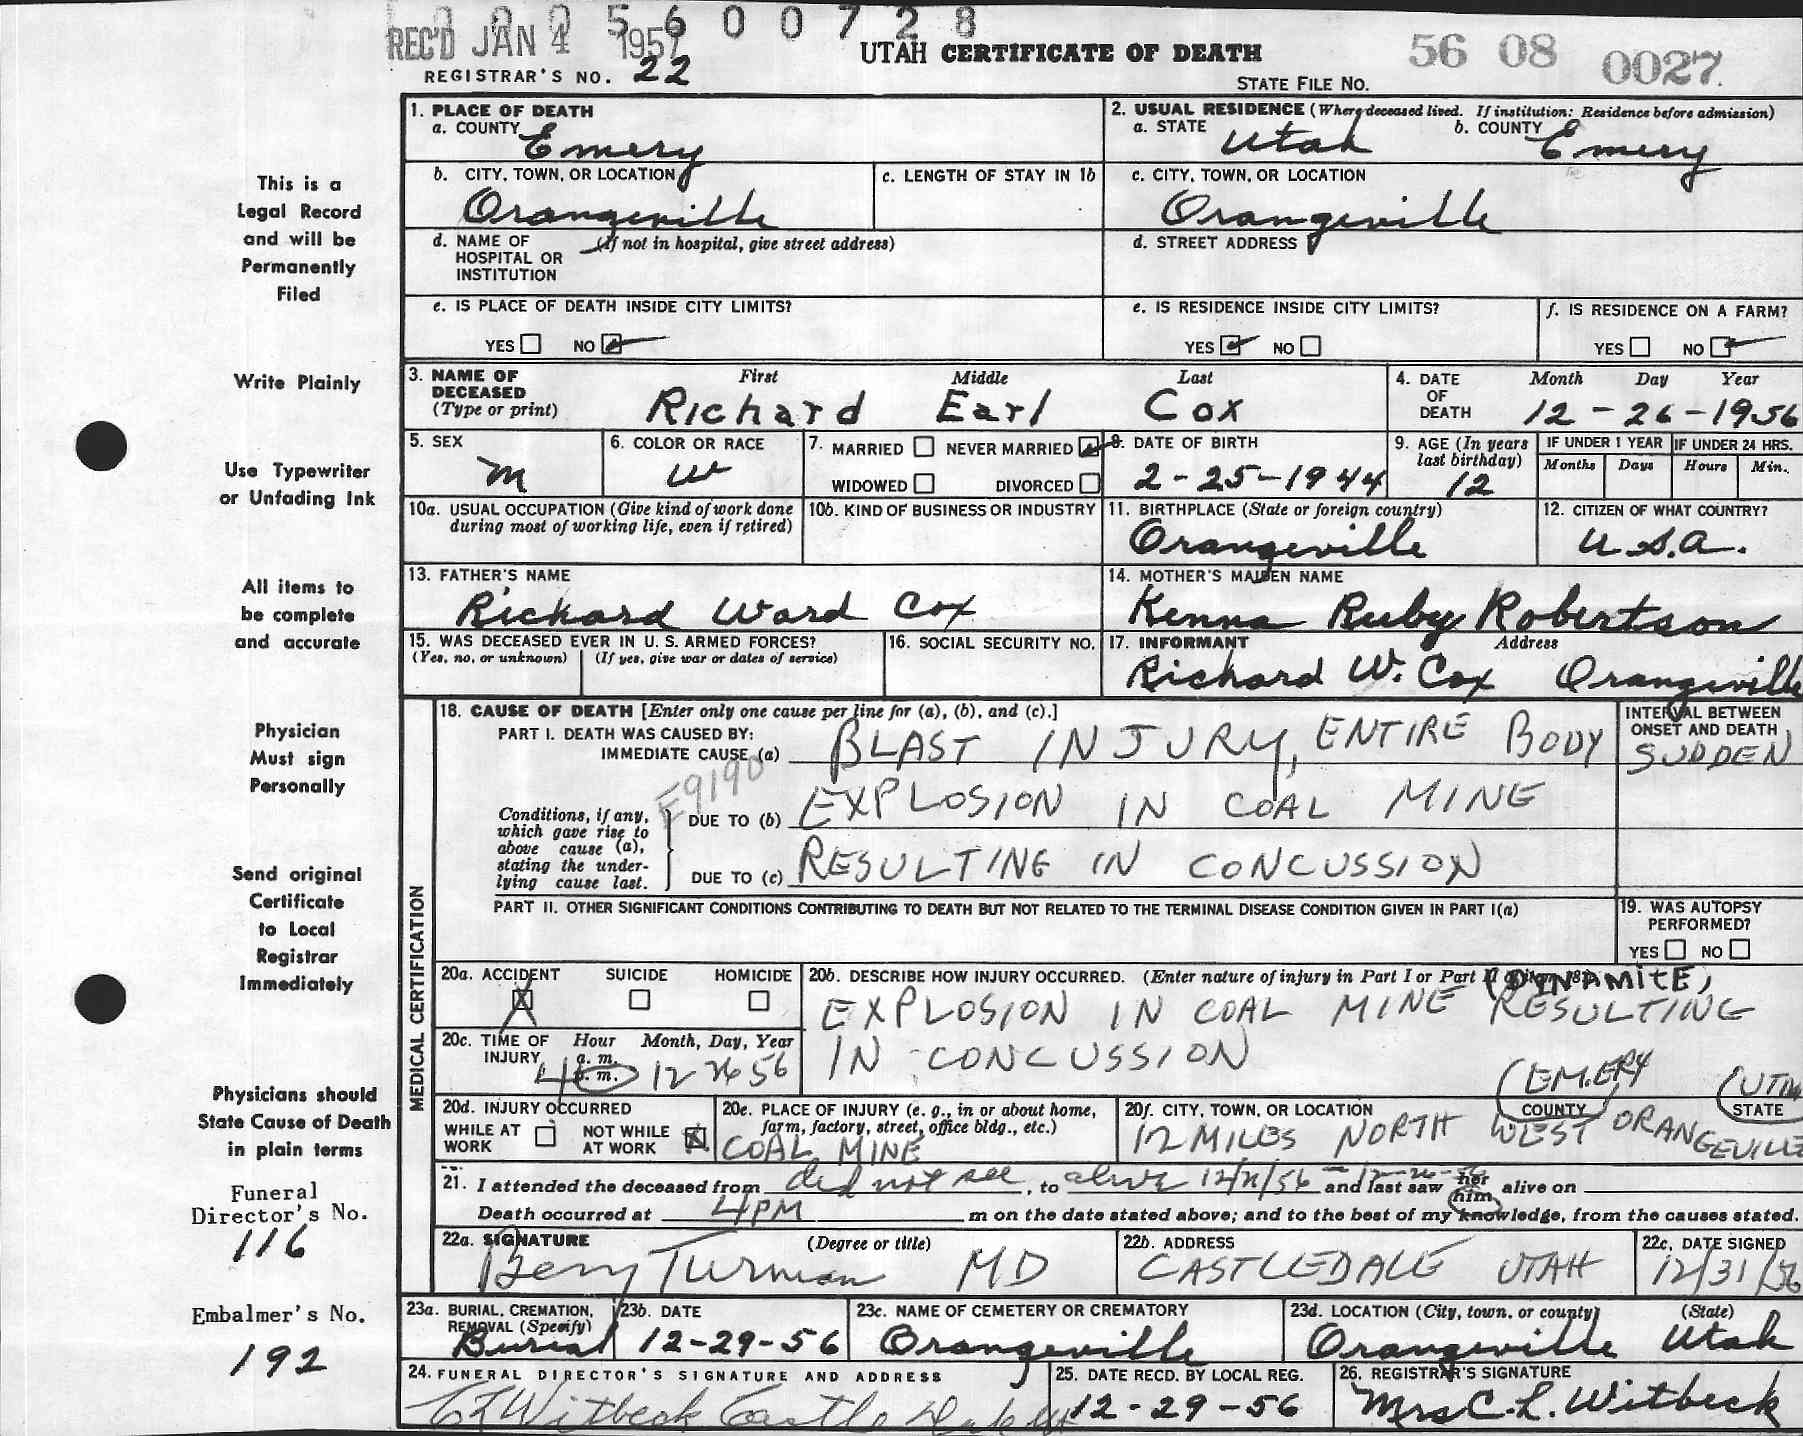 00056 0 0 7 2 8
REC'D JAN 4 1957
UTAH CERTIFICATE OF DEATH
56 08 0027
REGISTRAR'S NO. 22
STATE FILE NO.
This is a
Legal Record
and will be
Permanently
Filed
Write Plainly
Use Typewriter
or Unfading Ink
All items to
be complete
and accurate
Physician
Must sign
Personally
Send original
Certificate
to Local
Registrar
Immediately
Physicians should
State Cause of Death
in plain terms
Funeral
Director's No.
116
Embalmer's No.
192
1. PLACE OF DEATH
a. COUNTY Emery
2. USUAL RESIDENCE (Where deceased lived. If institution: Residence before admission)
a. STATE Utah b. COUNTY Emery
b. CITY, TOWN, OR LOCATION Orangeville
c. LENGTH OF STAY IN 1b
c. CITY, TOWN, OR LOCATION Orangeville
d. NAME OF HOSPITAL OR INSTITUTION (If not in hospital, give street address)
d. STREET ADDRESS
e. IS PLACE OF DEATH INSIDE CITY LIMITS?
YES NO
e. IS RESIDENCE INSIDE CITY LIMITS?
YES NO
f. IS RESIDENCE ON A FARM?
YES NO
3. NAME OF DECEASED (Type or print)
First Middle Last
Richard Earl Cox
4. DATE OF DEATH
Month Day Year
12-26-1956
5. SEX
M
6. COLOR OR RACE
W
7. MARRIED NEVER MARRIED
WIDOWED DIVORCED
8. DATE OF BIRTH
2-25-1944
9. AGE (In years last birthday)
12
IF UNDER 1 YEAR
Months Days
IF UNDER 24 HRS.
Hours Min.
10a. USUAL OCCUPATION (Give kind of work done during most of working life, even if retired)
10b. KIND OF BUSINESS OR INDUSTRY
11. BIRTHPLACE (State or foreign country)
Orangeville
12. CITIZEN OF WHAT COUNTRY?
U.S.A.
13. FATHER'S NAME
Richard Ward Cox
14. MOTHER'S MAIDEN NAME
Kenna Ruby Robertson
15. WAS DECEASED EVER IN U. S. ARMED FORCES?
(Yes, no, or unknown) (If yes, give war or dates of service)
16. SOCIAL SECURITY NO.
17. INFORMANT Address
Richard W. Cox Orangeville
MEDICAL CERTIFICATION
18. CAUSE OF DEATH [Enter only one cause per line for (a), (b), and (c).]
PART I. DEATH WAS CAUSED BY:
IMMEDIATE CAUSE (a) BLAST INJURY, ENTIRE BODY
INTERVAL BETWEEN ONSET AND DEATH
SUDDEN
E9190
Conditions, if any, which gave rise to above cause (a), stating the underlying cause last.
DUE TO (b) EXPLOSION IN COAL MINE
DUE TO (c) RESULTING IN CONCUSSION
PART II. OTHER SIGNIFICANT CONDITIONS CONTRIBUTING TO DEATH BUT NOT RELATED TO THE TERMINAL DISEASE CONDITION GIVEN IN PART I(a)
19. WAS AUTOPSY PERFORMED?
YES NO
20a. ACCIDENT SUICIDE HOMICIDE
X
20b. DESCRIBE HOW INJURY OCCURRED. (Enter nature of injury in Part I or Part II of item 18.)
(DINAMITE)
EXPLOSION IN COAL MINE RESULTING
IN CONCUSSION
20c. TIME OF INJURY
Hour Month, Day, Year
a. m.
4 p. m. 12 26 56
20d. INJURY OCCURRED
WHILE AT WORK NOT WHILE AT WORK X
20e. PLACE OF INJURY (e. g., in or about home, farm, factory, street, office bldg., etc.)
COAL MINE
20f. CITY, TOWN, OR LOCATION COUNTY STATE
(EMERY
12 MILES NORTH WEST ORANGEVILLE
21. I attended the deceased from did not see, to alive and last saw her him alive on 12-26-56
Death occurred at 4PM m on the date stated above; and to the best of my knowledge, from the causes stated.
22a. SIGNATURE (Degree or title)
Turman MD
22b. ADDRESS
CASTLEDALE UTAH
22c. DATE SIGNED
12/31/56
23a. BURIAL, CREMATION, REMOVAL (Specify)
Burial
23b. DATE
12-29-56
23c. NAME OF CEMETERY OR CREMATORY
Orangeville
23d. LOCATION (City, town, or county) (State)
Orangeville Utah
24. FUNERAL DIRECTOR'S SIGNATURE AND ADDRESS
Witbeck Castle Dale Ut
25. DATE RECD. BY LOCAL REG.
12-29-56
26. REGISTRAR'S SIGNATURE
Mrs C. L. Witbeck